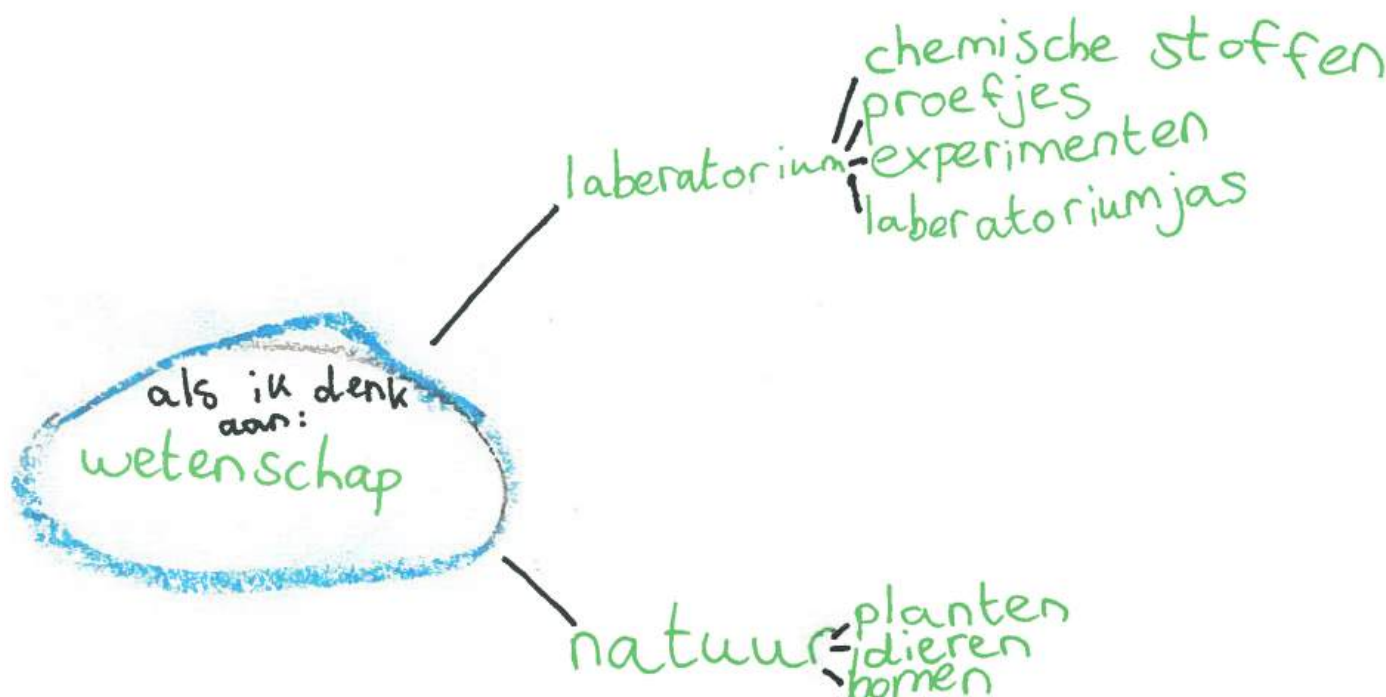 als ik denk
aan:
wetenschap
laberatorium
chemische stoffen
proefjes
experimenten
laberatoriumjas
natuur
planten
dieren
bomen